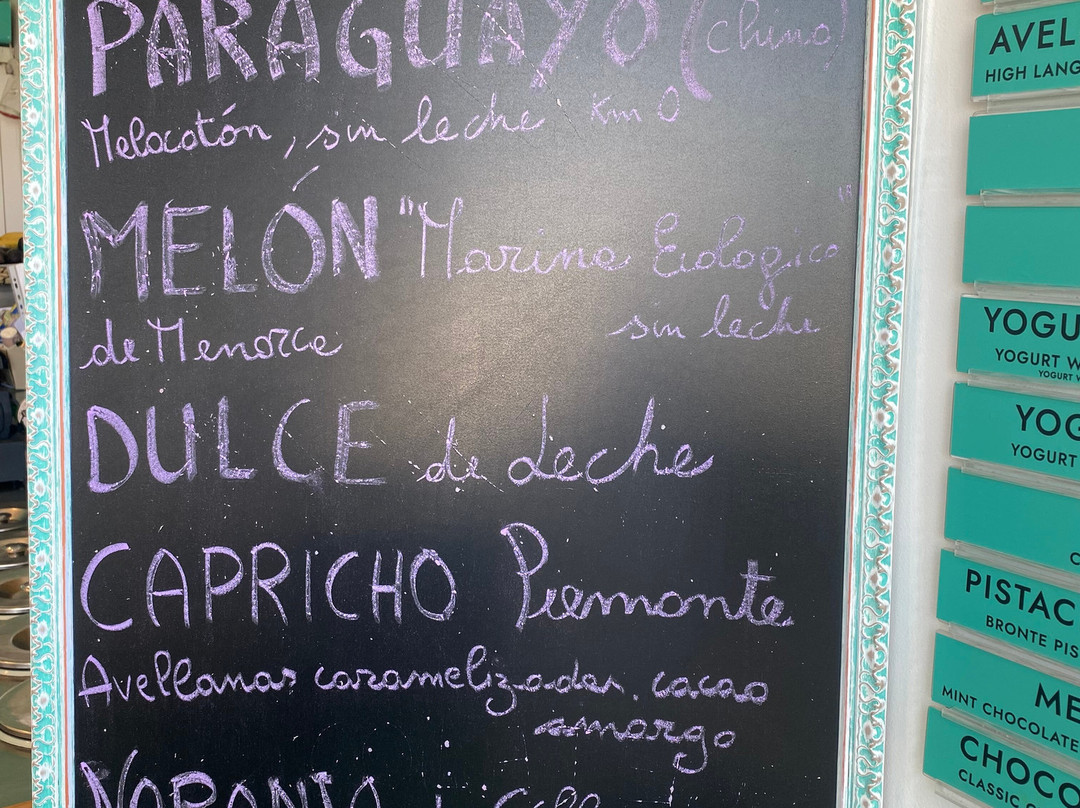 PARAGUAYO (chino)
Melocotón, sin leche Km 0
MELÓN "Marina Ecologico"
de Menorca sin leche
DULCE de Leche
CAPRICHO Piemonte
Avellanas caramelizadas. cacao
amargo
NARANJA
AVEL
HIGH LANG
YOGU
YOGURT W
YOGURT W
YOG
YOGURT
C
PISTAC
BRONTE PIS
ME
MINT CHOCOLATE
CHOCO
CLASSIC